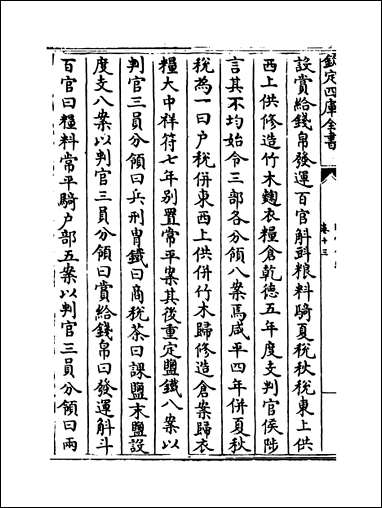 欽定四庫全書
卷十三
設賞給錢帛發運百官斛㪷粮料騎夏税秋税東上供
西上供修造竹木麴衣糧倉乾德五年度支判官侯陟
言其不均始令三部各分領八案焉咸平四年併夏秋
税為一曰户税併東西上供併竹木歸修造倉案歸衣
糧大中祥符七年别置常平案其後重定鹽鐵八案以
判官三員分領曰兵刑胄鐵曰商税茶曰課鹽末鹽設
度支八案以判官三員分領曰賞給錢帛曰發運斛斗
百官曰糧料常平騎户部五案以判官三員分領曰兩